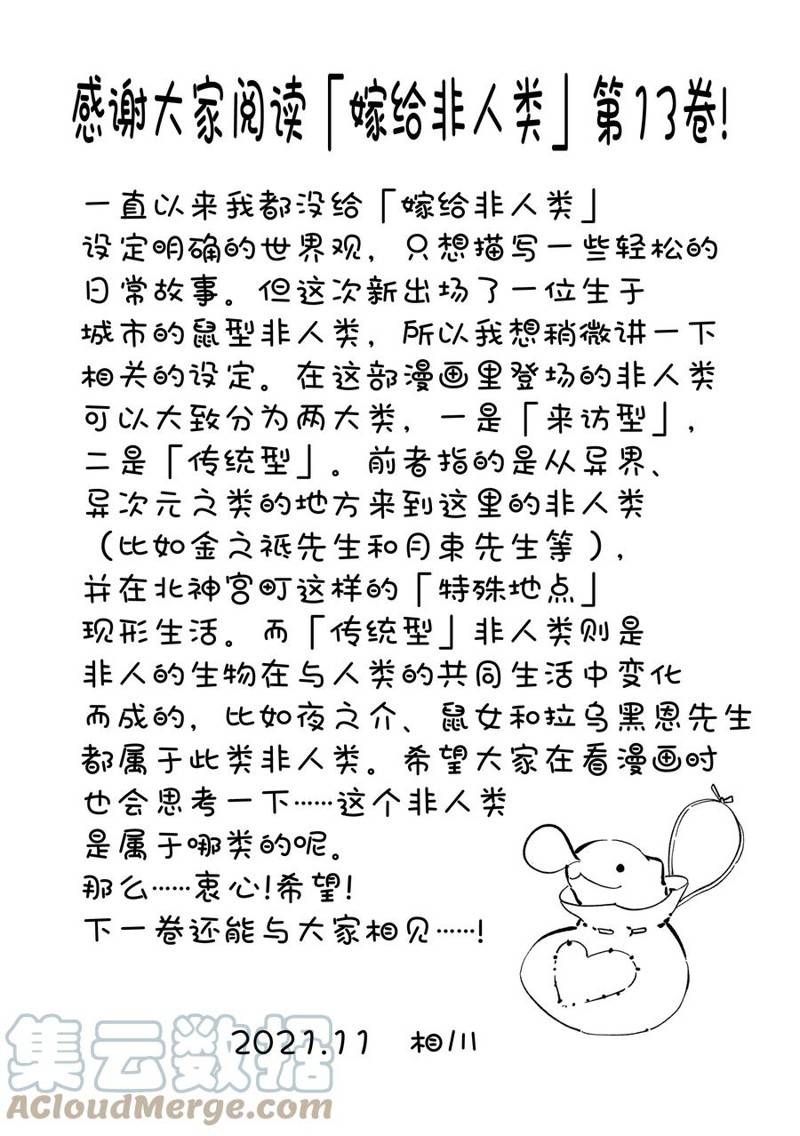 感谢大家阅读「嫁给非人类」第13卷!
一直以来我都没给「嫁给非人类」
设定明确的世界观，只想描写一些轻松的
日常故事。但这次新出场了一位生于
城市的鼠型非人类，所以我想稍微讲一下
相关的设定。在这部漫画里登场的非人类
可以大致分为两大类，一是「来访型」，
二是「传统型」。前者指的是从异界、
异次元之类的地方来到这里的非人类
（比如金之祗先生和月束先生等），
并在北神宫町这样的「特殊地点」
现形生活。而「传统型」非人类则是
非人的生物在与人类的共同生活中变化
而成的，比如夜之介、鼠女和拉乌黑恩先生
都属于此类非人类。希望大家在看漫画时
也会思考一下……这个非人类
是属于哪类的呢。
那么……衷心!希望!
下一卷还能与大家相见……!
2021.11 相川
集云数据
ACloudMerge.com